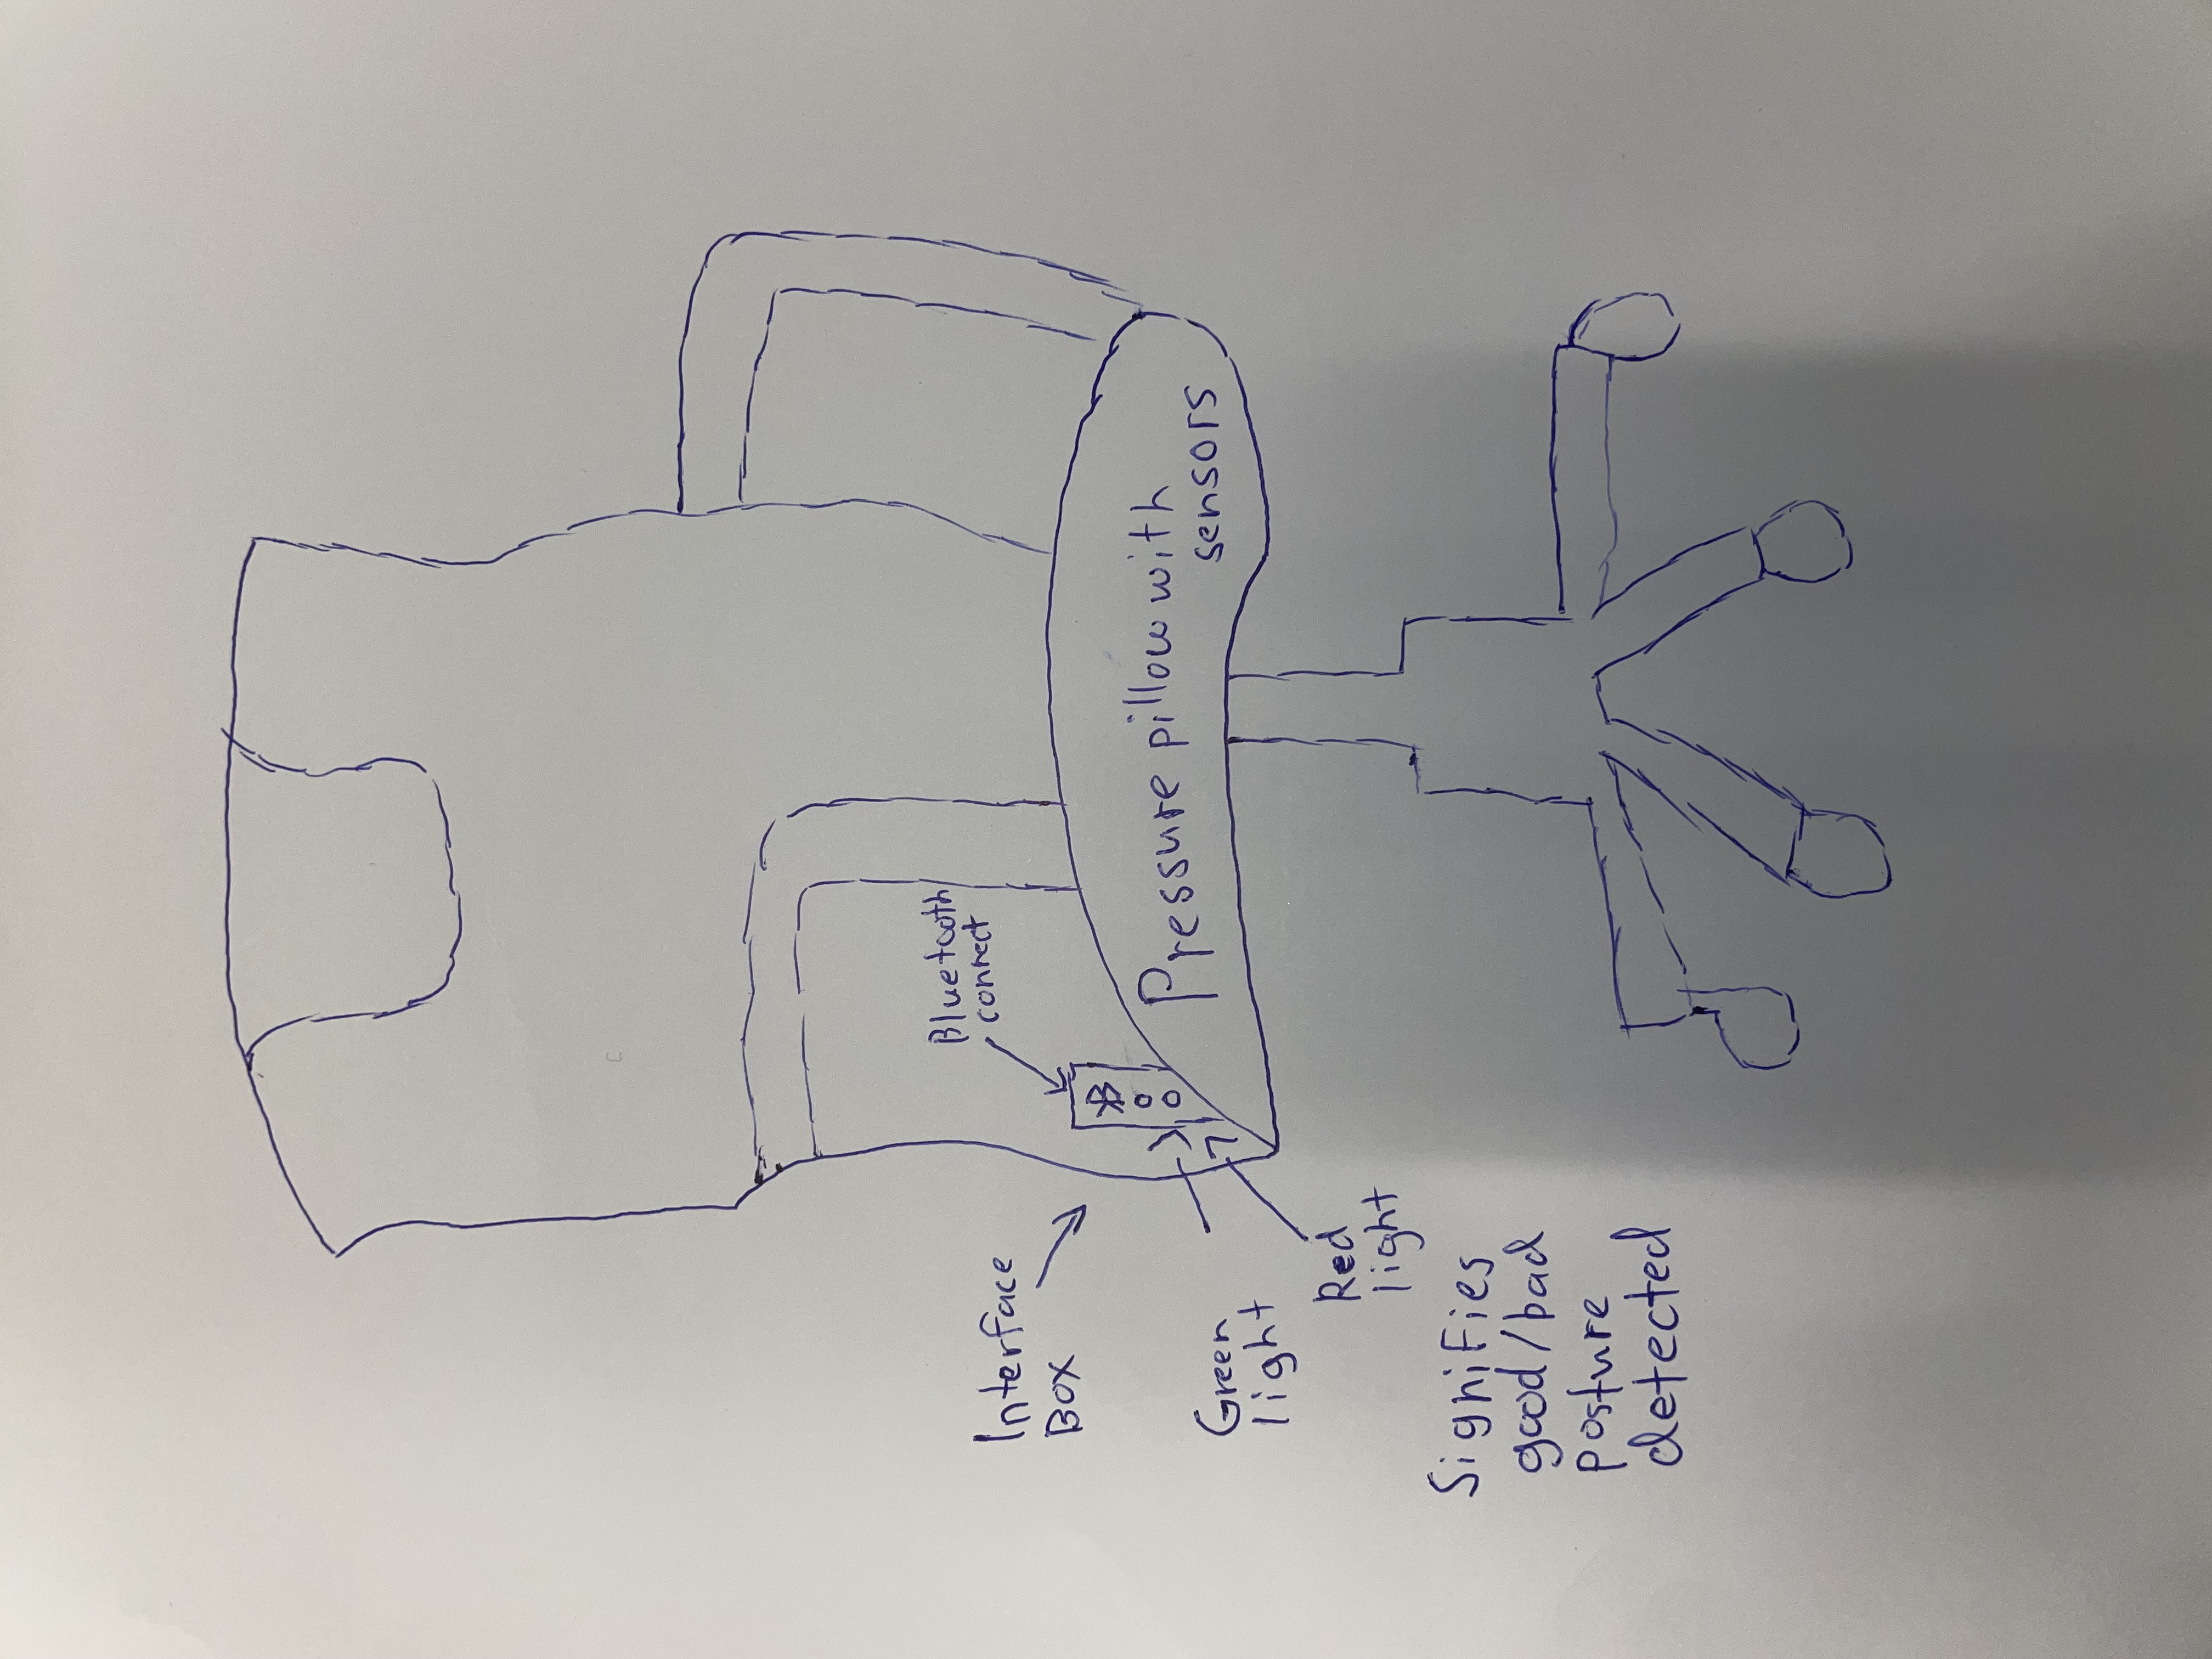 Bluetooth
connect
Interface
Box
Pressure pillow with
sensors
Green
light
Red
light
Signifies
good/bad
posture
detected